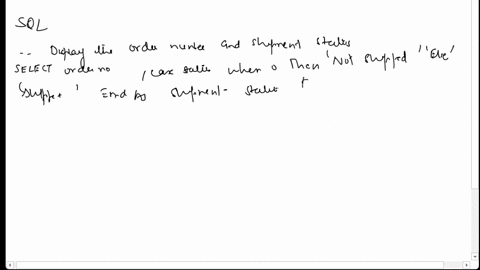 SQL
-- Display the order number and shipment status
SELECT order no , case status when 0 Then 'Not shipped' 'Else'
'shipped' End as shipment- status